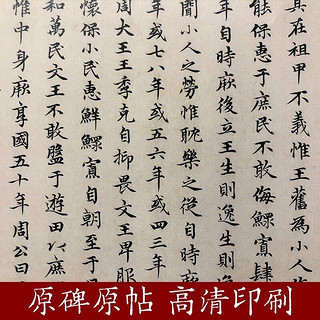 其在祖甲不義惟王舊為小人
能保惠于庶民不敢侮鰥寡肆
年自時厥後立王生則逸生則逸
聞小人之勞惟耽樂之從自時厥
年或七八年或五六年或四三年
周大王王季克自抑畏文王卑服
懷保小民惠鮮鰥寡自朝至于日
和萬民文王不敢盤于遊田以庶
惟中身厥享國五十年周公曰
原碑原帖 高清印刷